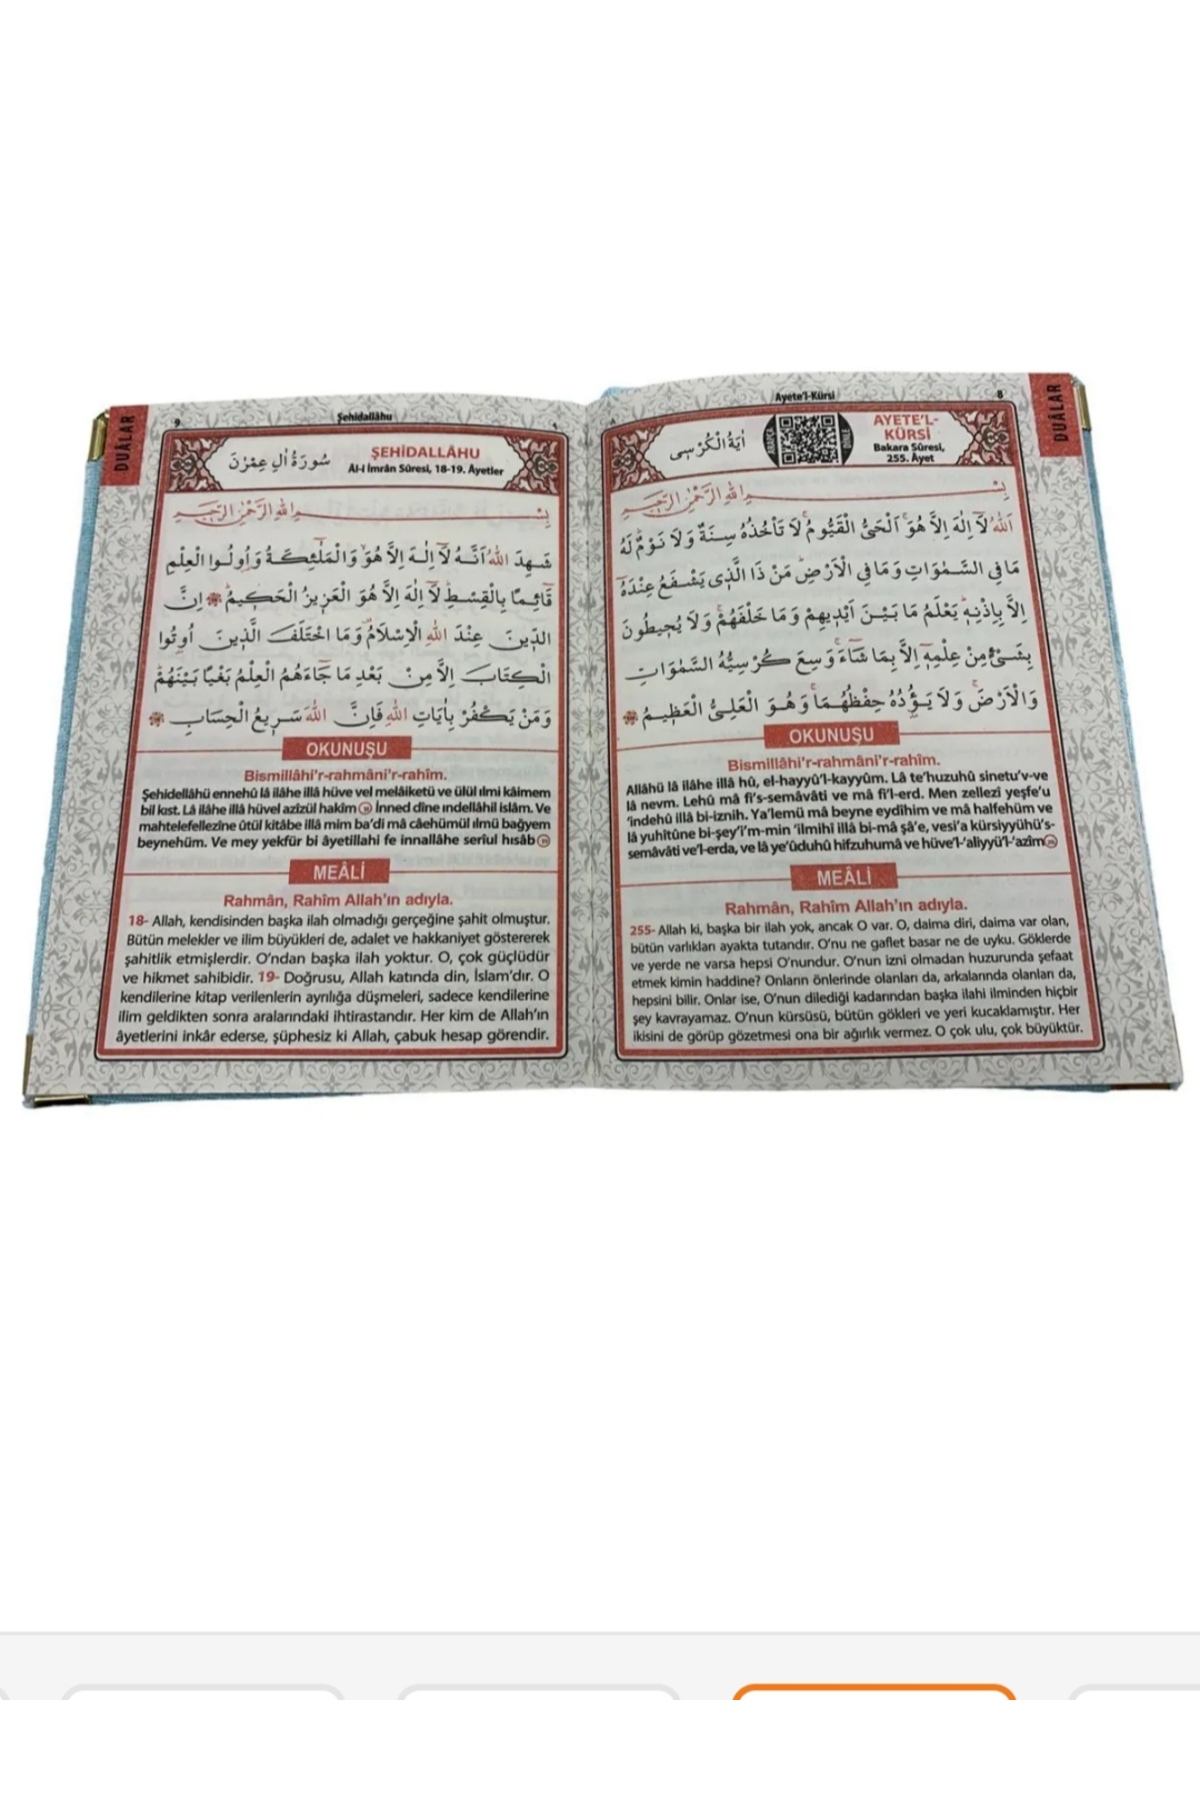 DUÂLAR
8
Ayete'l-Kürsi
٨
AYETE'L-
KÜRSİ
Bakara Sûresi,
255. Âyet
اٰيَةُ الْكُرْسِى
بِسْمِ اللهِ الرَّحْمٰنِ الرَّحِيمِ
اَللهُ لَٓا اِلٰهَ اِلَّا هُوَۚ اَلْحَيُّ الْقَيُّومُۚ لَا تَأْخُذُهُ سِنَةٌ وَلَا نَوْمٌۜ لَهُ
مَا فِي السَّمٰوَاتِ وَمَا فِي الْاَرْضِۜ مَنْ ذَا الَّذِى يَشْفَعُ عِنْدَهُٓ
اِلَّا بِاِذْنِهِۜ يَعْلَمُ مَا بَيْنَ اَيْدِيهِمْ وَمَا خَلْفَهُمْۚ وَلَا يُحِيطُونَ
بِشَىْءٍ مِنْ عِلْمِهِٓ اِلَّا بِمَا شَٓاءَۚ وَسِعَ كُرْسِيُّهُ السَّمٰوَاتِ
وَالْاَرْضَۚ وَلَا يَؤُدُهُ حِفْظُهُمَاۚ وَهُوَ الْعَلِىُّ الْعَظِيمُ
OKUNUŞU
Bismillâhi'r-rahmâni'r-rahîm.
Allâhü lâ ilâhe illâ hû, el-hayyü'l-kayyûm. Lâ te'huzuhû sinetu'v-ve
lâ nevm. Lehû mâ fi's-semâvâti ve mâ fi'l-erd. Men zellezi yeşfe'u
'indehû illâ bi-iznih. Ya'lemü mâ beyne eydîhim ve mâ halfehüm ve
lâ yuhîtûne bi-şey'i'm-min 'ilmihî illâ bi-mâ şâ'e, vesi'a kürsiyyühü's-
semâvâti ve'l-erda, ve lâ ye'ûduhû hifzuhumâ ve hüve'l-'aliyyü'l-'azîm
MEÂLİ
Rahmân, Rahîm Allah'ın adıyla.
255- Allah ki, başka bir ilah yok, ancak O var. O, daima diri, daima var olan,
bütün varlıkları ayakta tutandır. O'nu ne gaflet basar ne de uyku. Göklerde
ve yerde ne varsa hepsi O'nundur. O'nun izni olmadan huzurunda şefaat
etmek kimin haddine? Onların önlerinde olanları da, arkalarında olanları da,
hepsini bilir. Onlar ise, O'nun dilediği kadarından başka ilahi ilminden hiçbir
şey kavrayamaz. O'nun kürsüsü, bütün gökleri ve yeri kucaklamıştır. Her
ikisini de görüp gözetmesi ona bir ağırlık vermez. O çok ulu, çok büyüktür.
DUÂLAR
9
Şehidallâhu
ŞEHİDALLÂHU
Âl-i İmrân Sûresi, 18-19. Âyetler
سُورَةُ اٰلِ عِمْرٰنَ
بِسْمِ اللهِ الرَّحْمٰنِ الرَّحِيمِ
شَهِدَ اللهُ اَنَّهُ لَٓا اِلٰهَ اِلَّا هُوَۙ وَالْمَلٰٓئِكَةُ وَاُولُوا الْعِلْمِ
قَٓائِمًا بِالْقِسْطِۜ لَٓا اِلٰهَ اِلَّا هُوَ الْعَزِيزُ الْحَكِيمُۜ اِنَّ
الدِّينَ عِنْدَ اللهِ الْاِسْلَامُ۠ وَمَا اخْتَلَفَ الَّذِينَ اُوتُوا
الْكِتَابَ اِلَّا مِنْ بَعْدِ مَا جَٓاءَهُمُ الْعِلْمُ بَغْيًا بَيْنَهُمْۜ
وَمَنْ يَكْفُرْ بِاٰيَاتِ اللهِ فَاِنَّ اللهَ سَرِيعُ الْحِسَابِ
OKUNUŞU
Bismillâhi'r-rahmâni'r-rahîm.
Şehidellâhü ennehû lâ ilâhe illâ hüve vel melâiketü ve ülül ılmi kâimem
bil kıst. Lâ ilâhe illâ hüvel azîzül hakîm İnned dîne indellâhil islâm. Ve
mahtelefellezîne ûtül kitâbe illâ mim ba'di mâ câehümül ılmü bağyem
beynehüm. Ve mey yekfür bi âyetillahi fe innallâhe serîul hısâb
MEÂLİ
Rahmân, Rahîm Allah'ın adıyla.
18- Allah, kendisinden başka ilah olmadığı gerçeğine şahit olmuştur.
Bütün melekler ve ilim büyükleri de, adalet ve hakkaniyet göstererek
şahitlik etmişlerdir. O'ndan başka ilah yoktur. O, çok güçlüdür
ve hikmet sahibidir. 19- Doğrusu, Allah katında din, İslam'dır. O
kendilerine kitap verilenlerin ayrılığa düşmeleri, sadece kendilerine
ilim geldikten sonra aralarındaki ihtirastandır. Her kim de Allah'ın
âyetlerini inkâr ederse, şüphesiz ki Allah, çabuk hesap görendir.